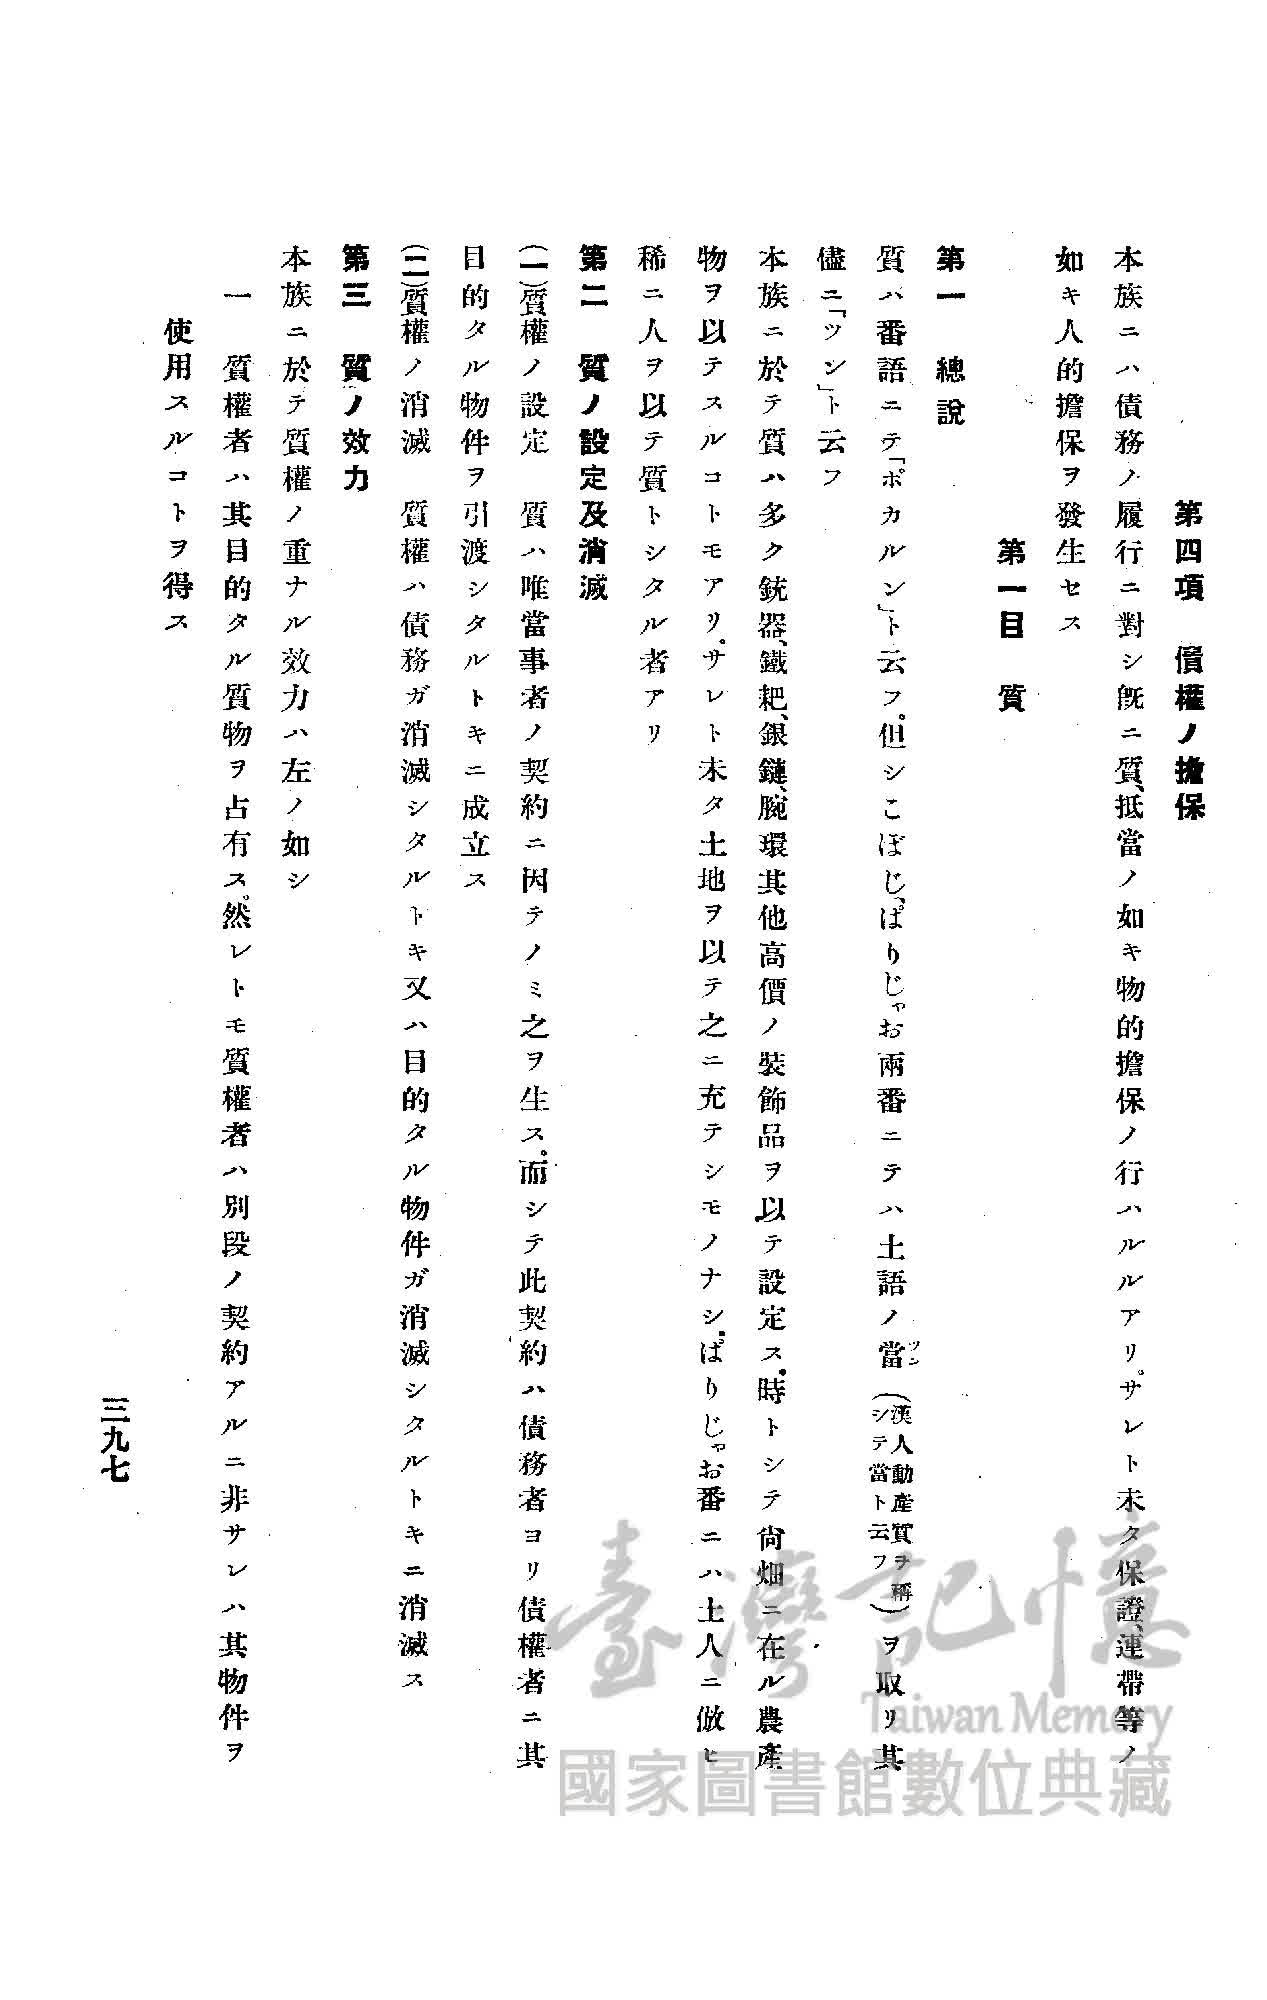 第四項　債權ノ擔保
本族ニハ債務ノ履行ニ對シ旣ニ質、抵當ノ如キ物的擔保ノ行ハルルアリ。サレト未タ保證、連帶等ノ
如キ人的擔保ヲ發生セス
第一目　質
第一　總說
質ハ番語ニテ「ポカルン」ト云フ。但シこぼじ、ぱりじゃお兩番ニテハ土語ノ當ツン（漢人動產質ヲ稱シテ當ト云フ）ヲ取リ其
儘ニ「ツン」ト云フ
本族ニ於テ質ハ多ク銃器、鐵耙、銀鏈、腕環其他高價ノ裝飾品ヲ以テ設定ス。時トシテ尙畑ニ在ル農產
物ヲ以テスルコトモアリ。サレト未タ土地ヲ以テ之ニ充テシモノナシ。ぱりじゃお番ニハ土人ニ倣ヒ
稀ニ人ヲ以テ質トシタル者アリ
第二　質ノ設定及消滅
（一）質權ノ設定　質ハ唯當事者ノ契約ニ因テノミ之ヲ生ス。而シテ此契約ハ債務者ヨリ債權者ニ其
目的タル物件ヲ引渡シタルトキニ成立ス
（二）質權ノ消滅　質權ハ債務ガ消滅シタルトキ又ハ目的タル物件ガ消滅シタルトキニ消滅ス
第三　質ノ效力
本族ニ於テ質權ノ重ナル效力ハ左ノ如シ
一　質權者ハ其目的タル質物ヲ占有ス。然レトモ質權者ハ別段ノ契約アルニ非サレハ其物件ヲ
使用スルコトヲ得ス
三九七
臺灣記憶
Taiwan Memory
國家圖書館數位典藏